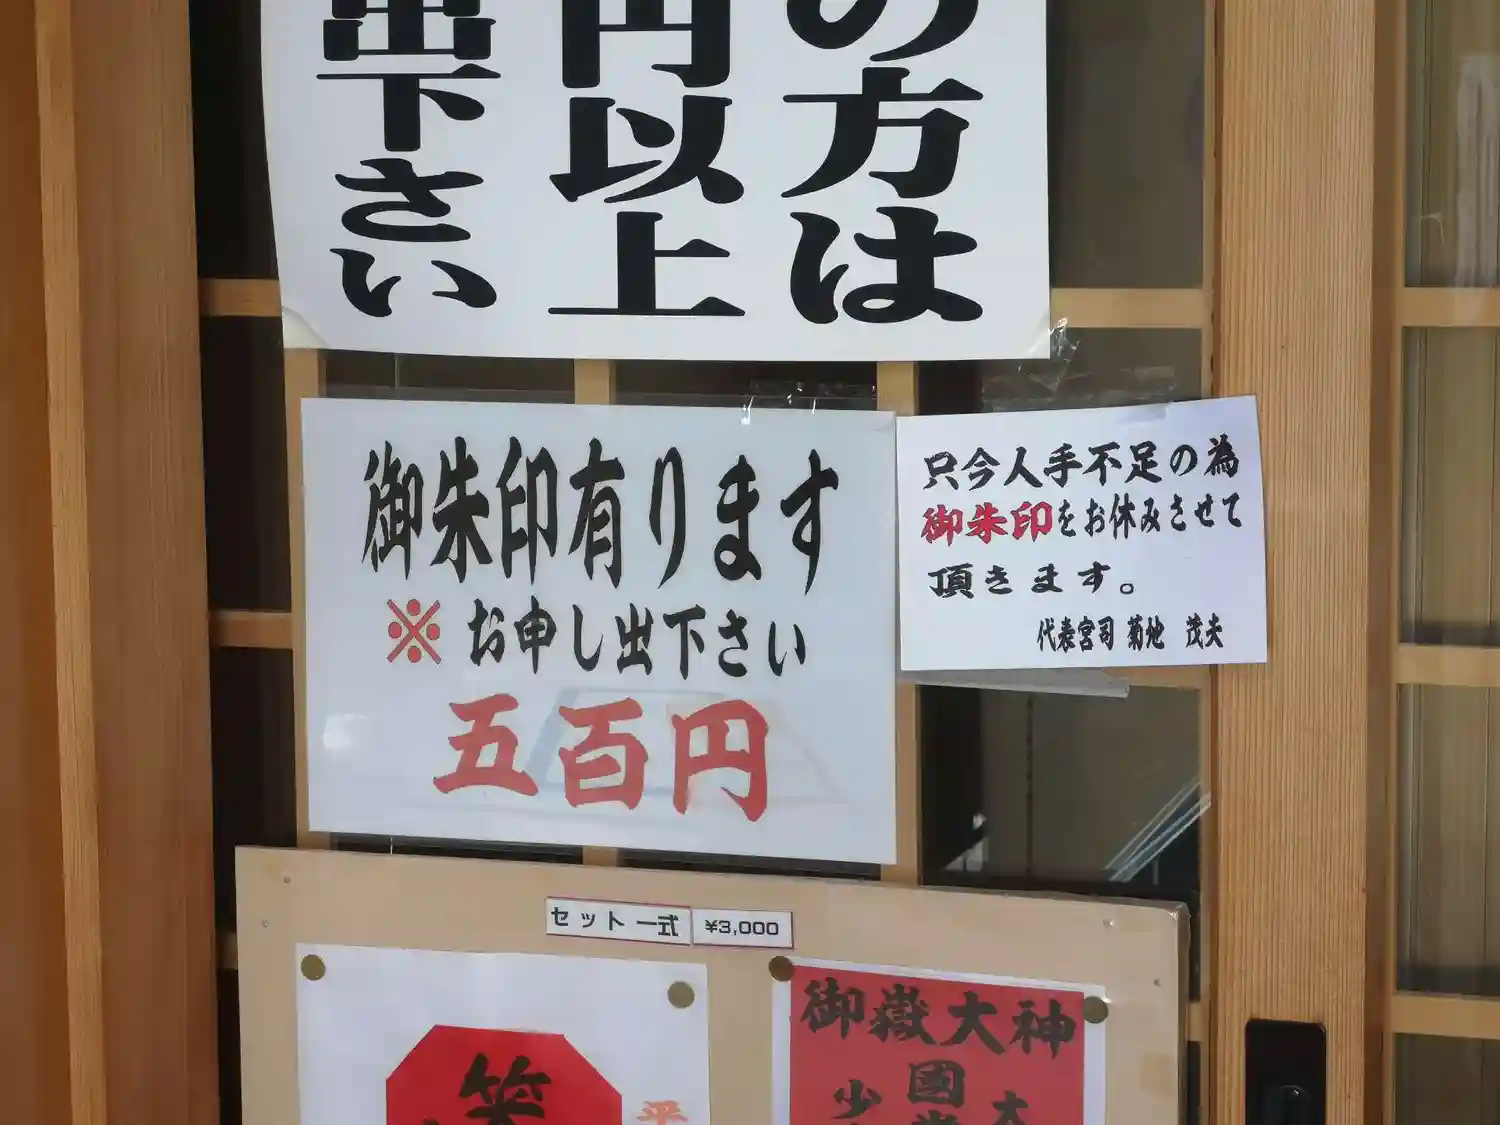 の方は
円以上
出下さい
御朱印有ります
※ お申し出下さい
五百円
只今人手不足の為
御朱印をお休みさせて
頂きます。
代表宮司 菊地 茂夫
セット一式 ¥3,000
御嶽大神
國